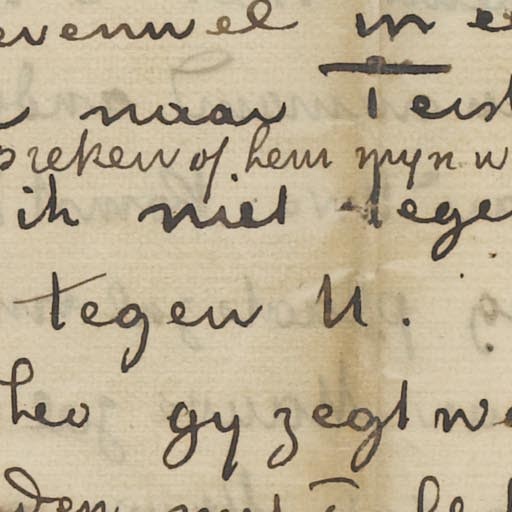 evenwel in e
naar Teist
preken of hem myn w
ik niet tege
tegen U.
heo gy zegt we
den met